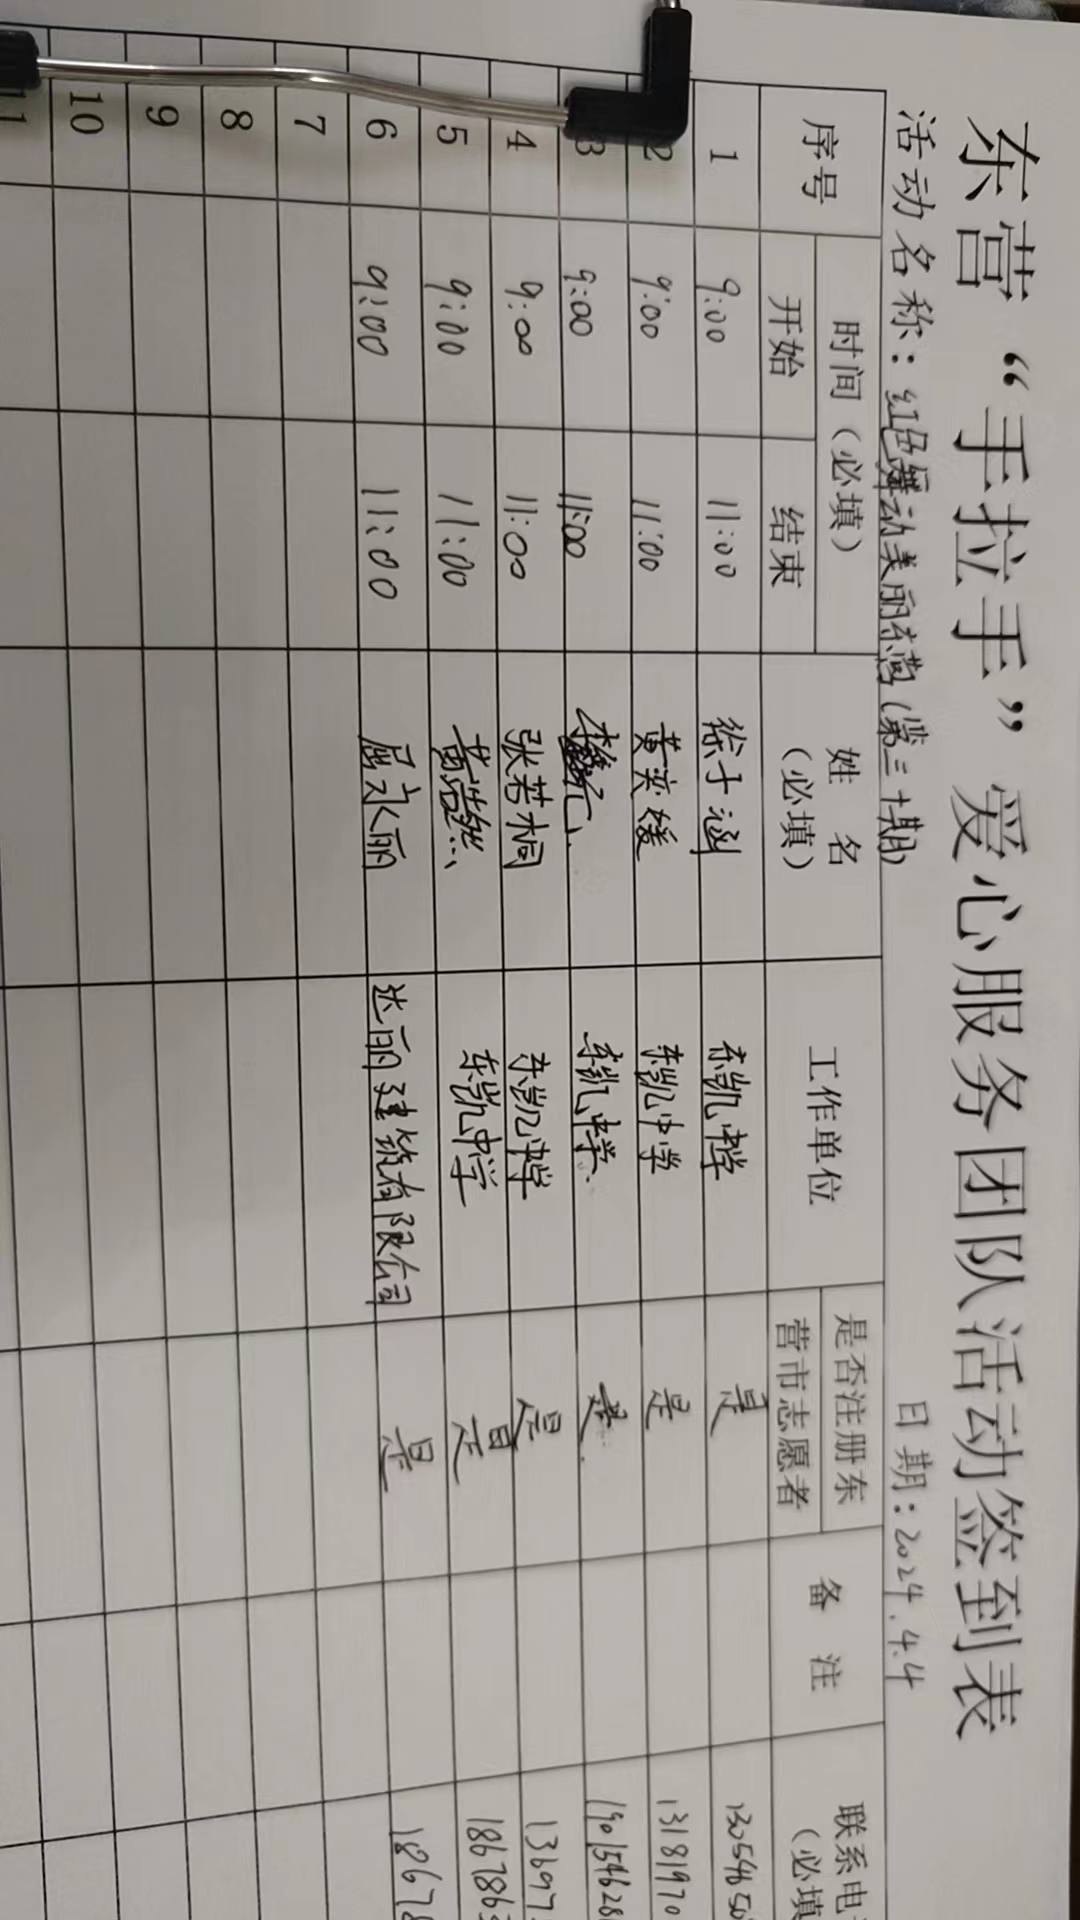 东营“手拉手”爱心服务团队活动签到表
活动名称：红色舞动美丽东营（第三十期） 日期：2024.4.4
序号 时间（必填） 姓名（必填） 工作单位 是否注册东营市志愿者 备注 联系电
开始 结束 （必填
1 9:00 11:00 徐子涵 东凯中学 是
2 9:00 11:00 黄奕媛 东凯中学 是 13181970
3 9:00 11:00 东凯中学 是
4 9:00 11:00 张若桐 东凯中学 是 13697
5 9:00 11:00 苗浩然 东凯中学 是 186786
6 9:00 11:00 屈永丽 达丽建筑有限公司 是 18678
7
8
9
10
11